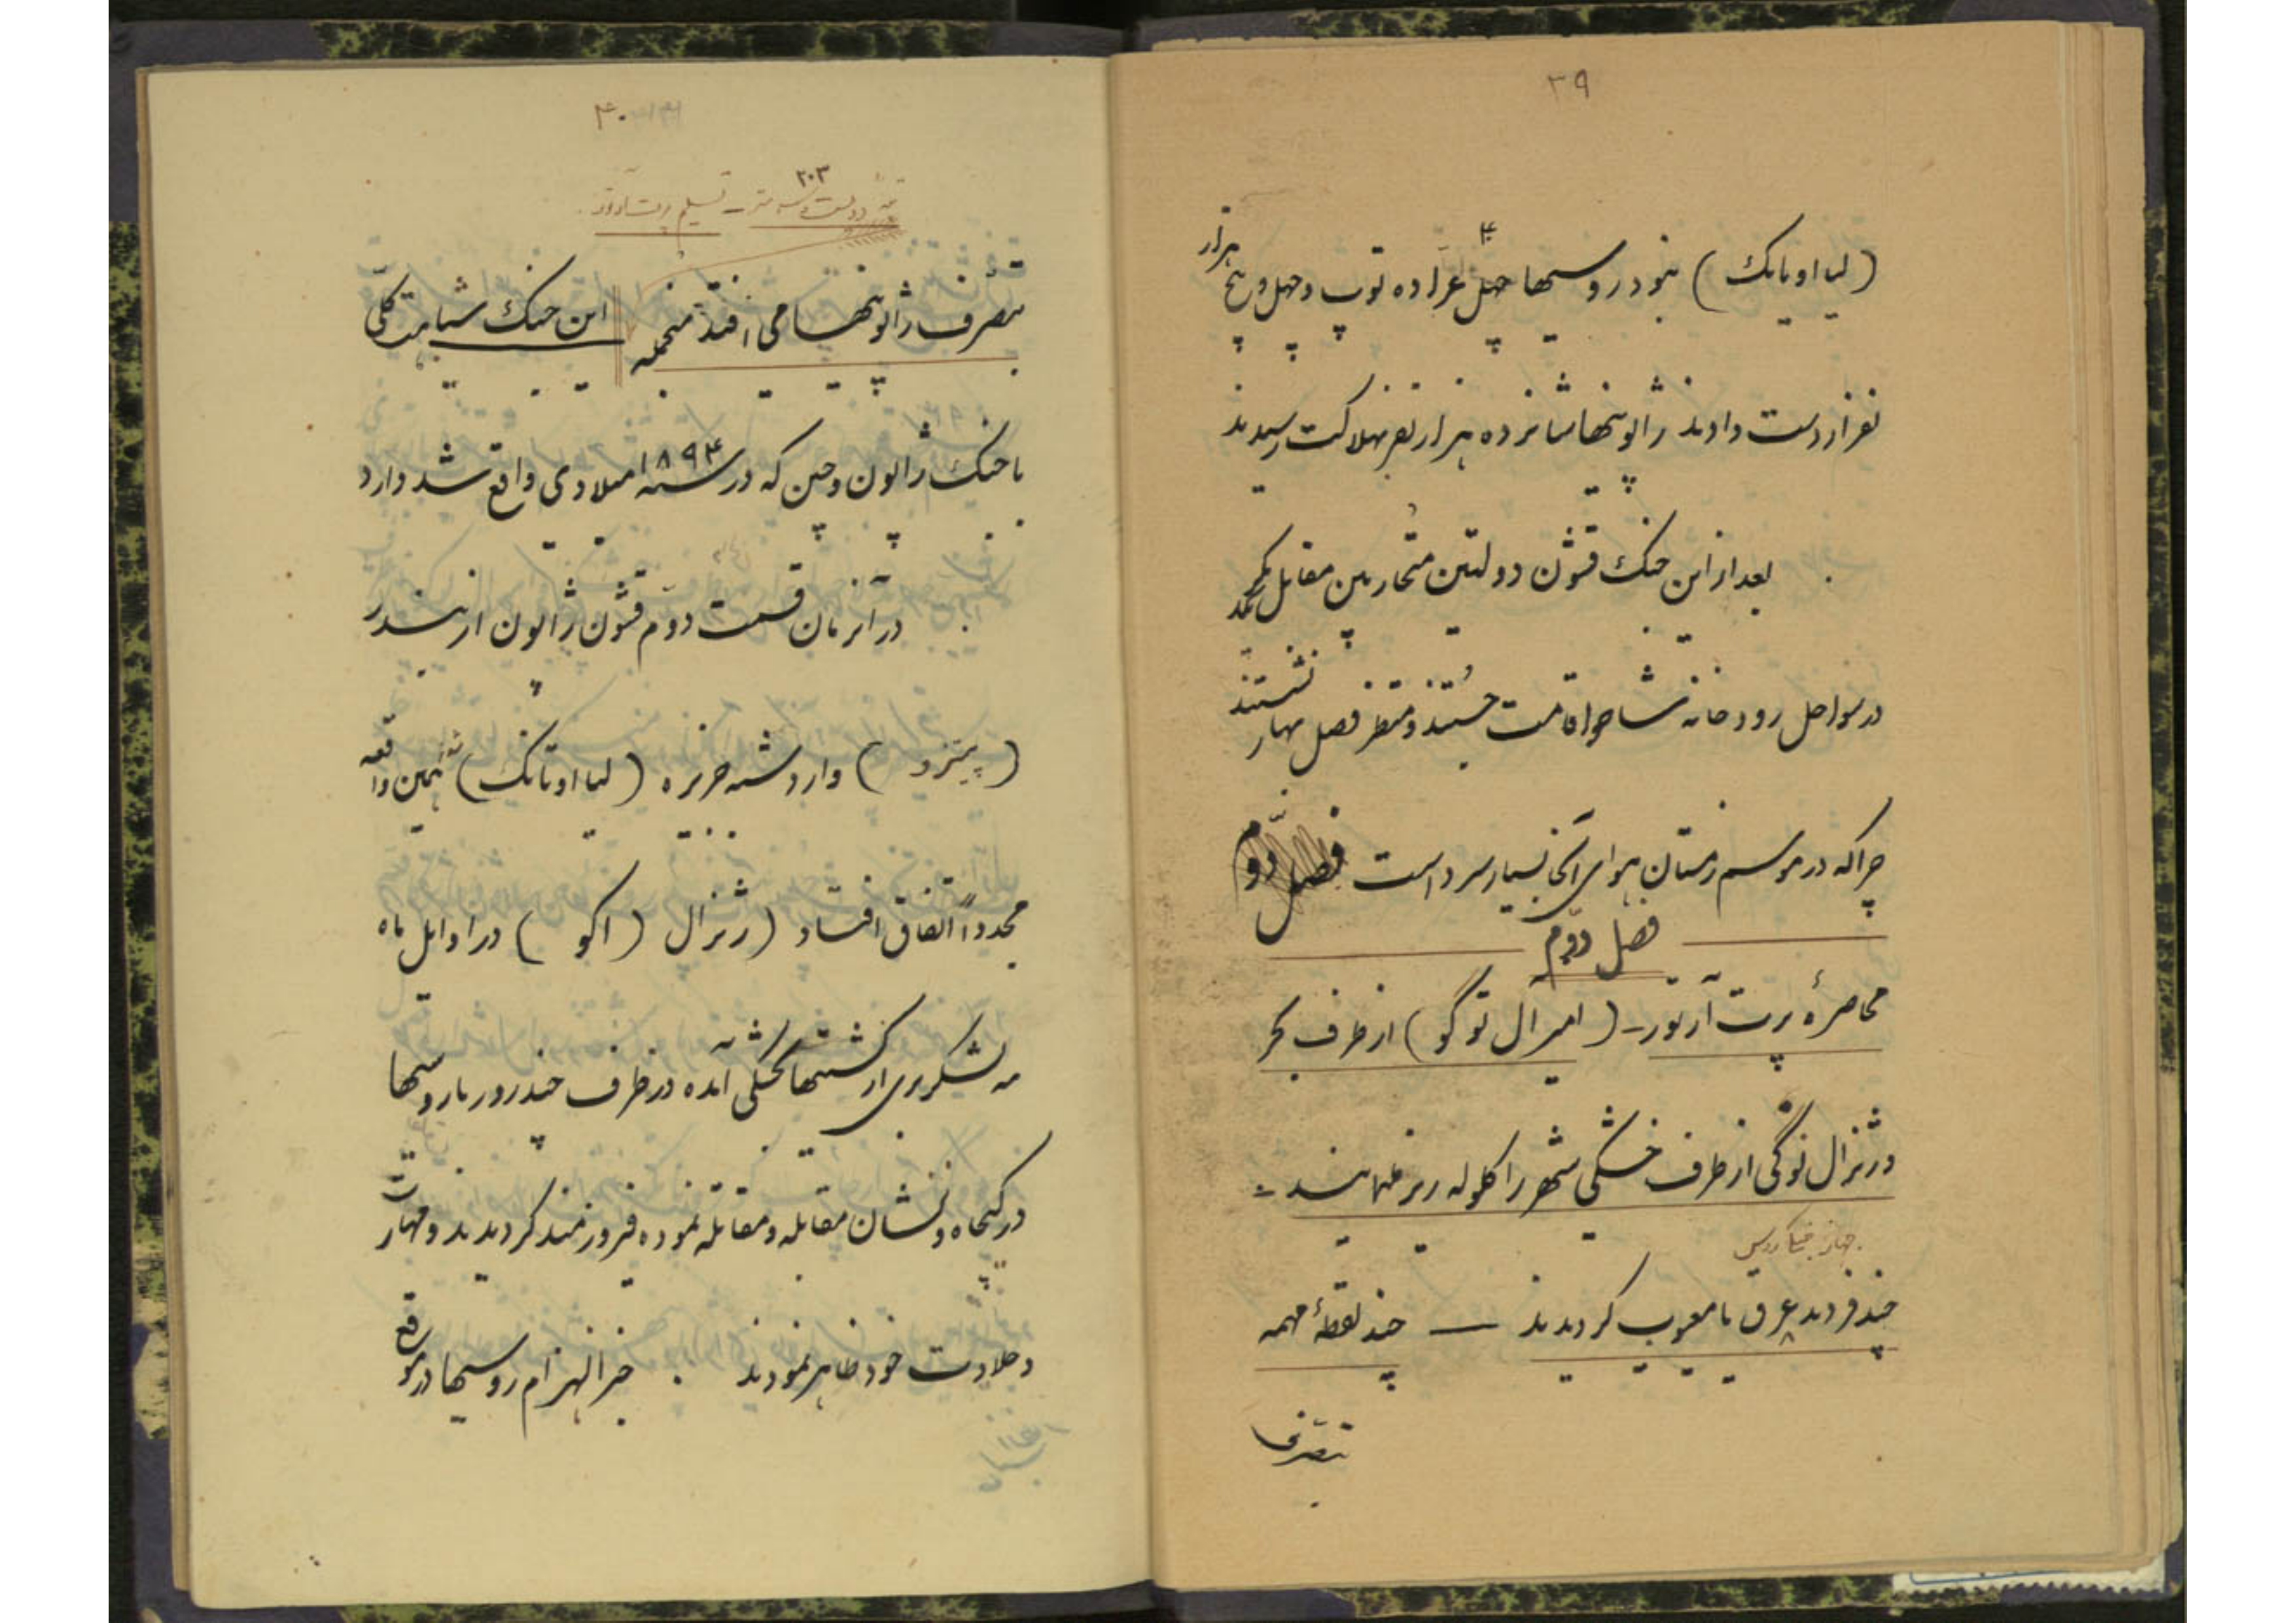 ۳۹
(لیااویانک) بنود روسیها چهل عراده توپ و چهل و پنج هزار
۴۰
نفر از دست دادند ژاپونیها شانزده هزار نفر بهلاکت رسیدند
بعد از این جنک قشون دولتین متحاربین مقابل یکدیگر
در سواحل رودخانه شاهو اقامت جستند و منتظر فصل بهار نشستند
چراکه در موسم زمستان هوای آنجا بسیار سرد است فصل دوم
فصل دوّم
محاصرهٔ پرت آرتور ـ (امیرآل توگو) از طرف بحر
و ژنرال نوگی از طرف خشکی شهر را گلوله ریز مینمایند ـ
جهاز جنگی روس
چند فروند غرق یا معیوب گردیدند ـــ چند نقطهٔ مهمه
بتصرف
۴۰
۲۰۳
تپه دویست و سه متر ـ تسلیم پرت آرتور
بتصرف ژاپونیها می افتد منجمله این جنک شباهت کلّی
با جنک ژاپون و چین که در سنه ۱۸۹۴ میلادی واقع شد دارد
در آنزمان قسمت دوّم قشون ژاپون از بندر
(پیتزو) وارد شبه جزیره (لیااوتانک) شد همین واقعه
مجدداً اتفاق افتاد (ژنرال (اکو) در اوایل ماه
مه لشکر بری از کشتیها بخشکی آمده در ظرف چند روز با روسیها
در کینجاه و نشان مقابله و مقاتله نموده فیروزمند گردیدند و مهارت
و جلادت خود ظاهر نمودند . خبر انهزام روسیها در موقع